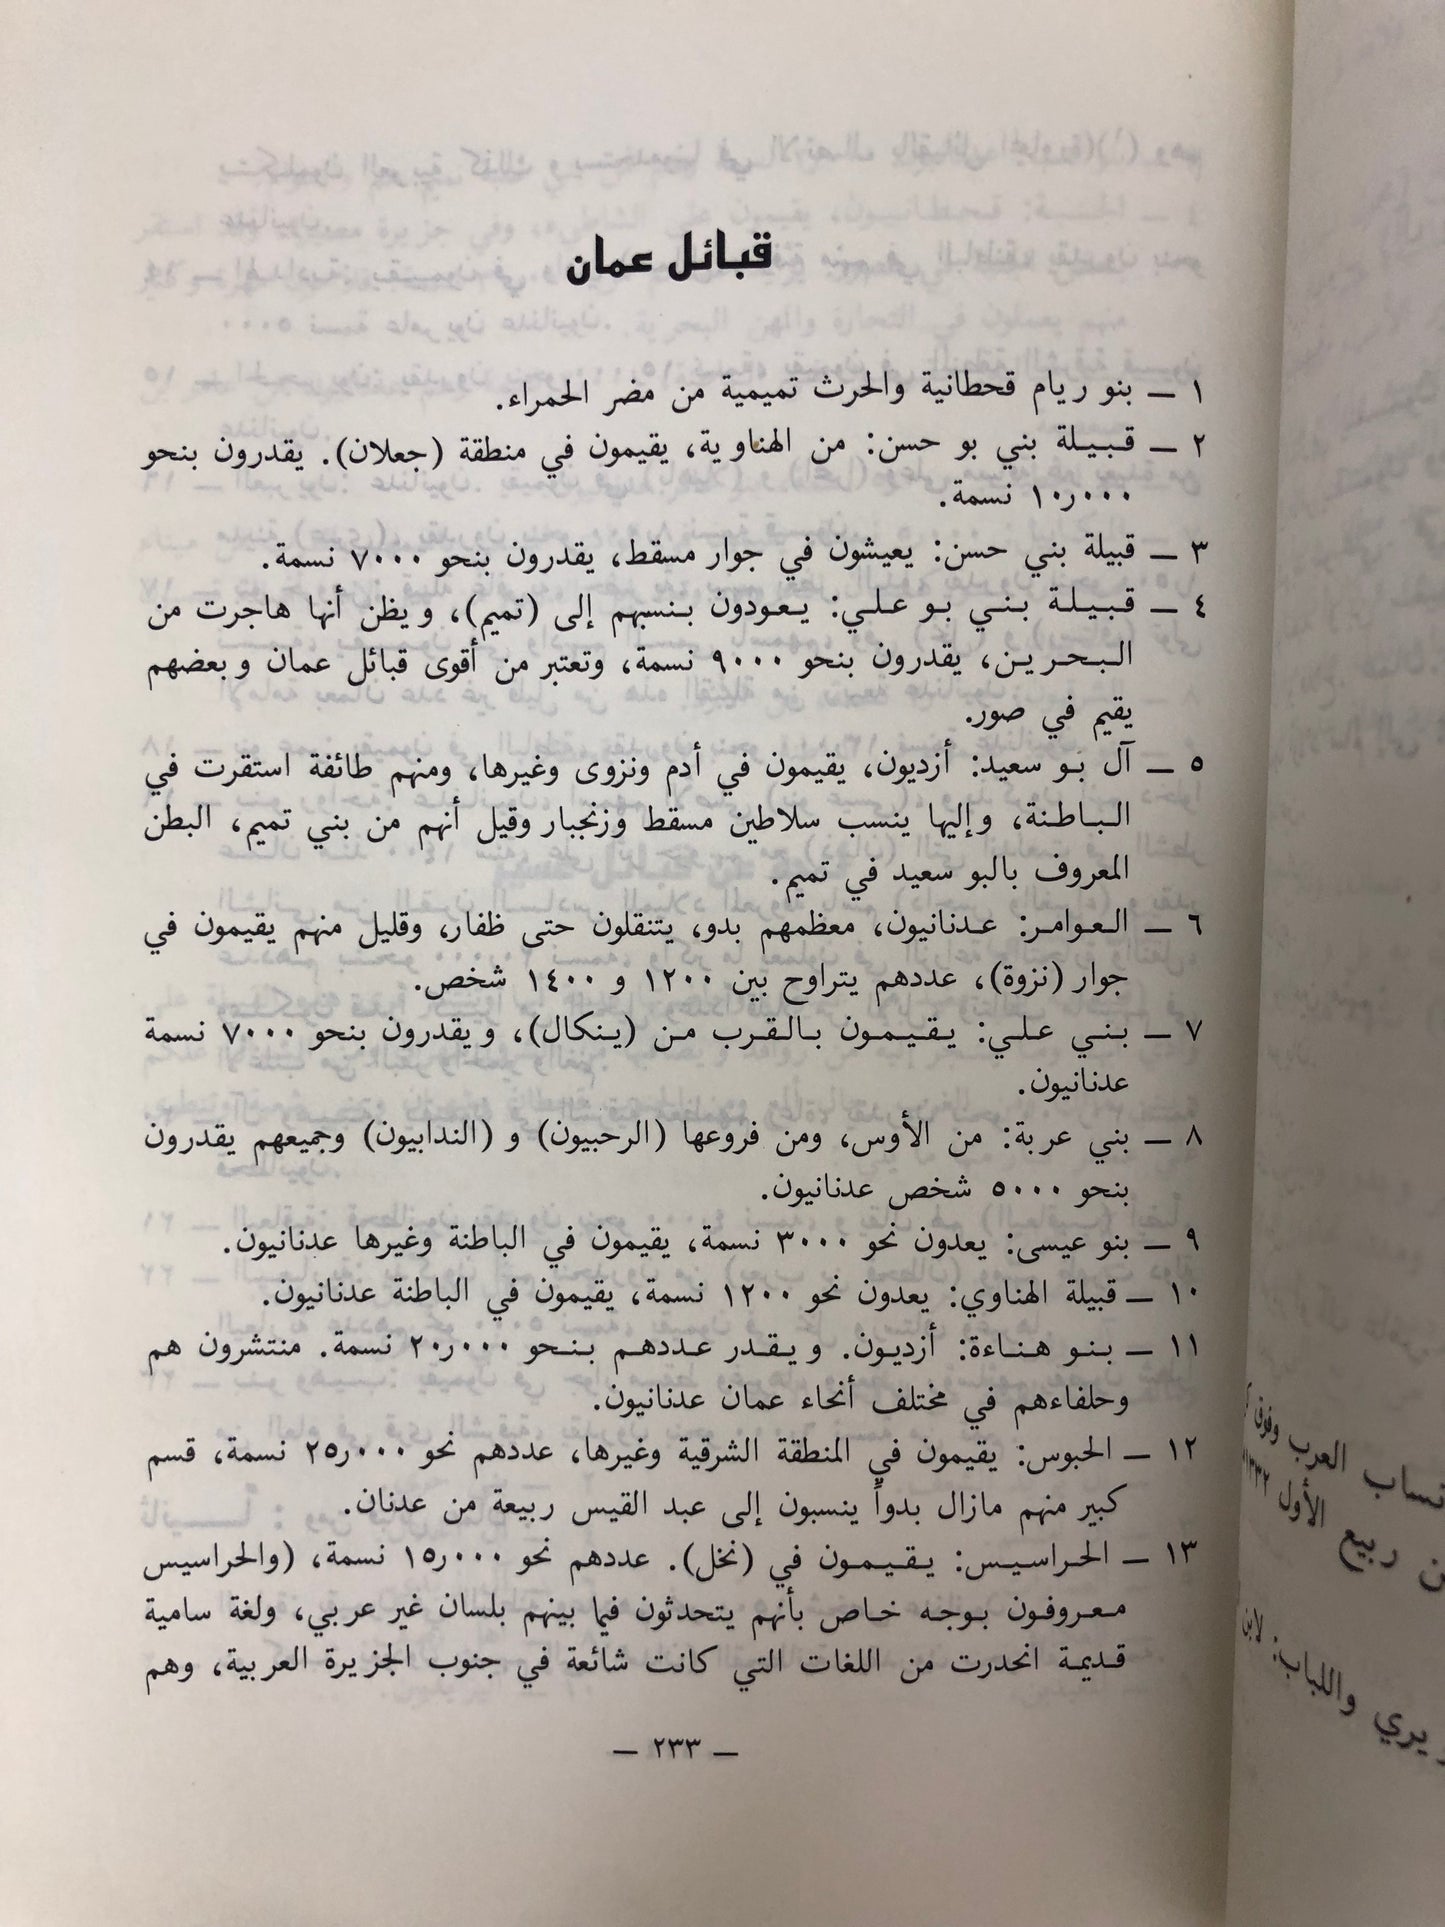 قبائل عمان
١ ــ بنو ريام قحطانية والحرث تميمية من مضر الحمراء.
٢ ــ قبيلة بني بو حسن: من الهناوية، يقيمون في منطقة (جعلان). يقدرون بنحو
١٠٫٠٠٠ نسمة.
٣ ــ قبيلة بني حسن: يعيشون في جوار مسقط، يقدرون بنحو ٧٠٠٠ نسمة.
٤ ــ قبيلة بني بو علي: يعودون بنسبهم إلى (تميم)، ويظن أنها هاجرت من
البحرين، يقدرون بنحو ٩٠٠٠ نسمة، وتعتبر من أقوى قبائل عمان وبعضهم
يقيم في صور.
٥ ــ آل بَو سعيد: أزديون، يقيمون في أدم ونزوى وغيرها، ومنهم طائفة استقرت في
الباطنة، وإليها ينسب سلاطين مسقط وزنجبار وقيل أنهم من بني تميم، البطن
المعروف بالبو سعيد في تميم.
٦ ــ العوامر: عدنانيون، معظمهم بدو، يتنقلون حتى ظفار، وقليل منهم يقيمون في
جوار (نزوة)، عددهم يتراوح بين ١٢٠٠ و ١٤٠٠ شخص.
٧ ــ بني علي: يقيمون بالقرب من (ينكال)، ويقدرون بنحو ٧٠٠٠ نسمة
عدنانيون.
٨ ــ بني عربة: من الأوس، ومن فروعها (الرحبيون) و (الندابيون) وجميعهم يقدرون
بنحو ٥٠٠٠ شخص عدنانيون.
٩ ــ بنو عيسى: يعدون نحو ٣٠٠٠ نسمة، يقيمون في الباطنة وغيرها عدنانيون.
١٠ ــ قبيلة الهناوي: يعدون نحو ١٢٠٠ نسمة، يقيمون في الباطنة عدنانيون.
١١ ــ بنو هناءة: أزديون. ويقدر عددهم بنحو ٢٠٫٠٠٠ نسمة. منتشرون هم
وحلفاءهم في مختلف أنحاء عمان عدنانيون.
١٢ ــ الحبوس: يقيمون في المنطقة الشرقية وغيرها، عددهم نحو ٢٥٫٠٠٠ نسمة، قسم
كبير منهم مازال بدواً ينسبون إلى عبد القيس ربيعة من عدنان.
١٣ ــ الحراسيس: يقيمون في (نخل). عددهم نحو ١٥٫٠٠٠ نسمة، (والحراسيس
معروفون بوجه خاص بأنهم يتحدثون فيما بينهم بلسان غير عربي، ولغة سامية
قديمة انحدرت من اللغات التي كانت شائعة في جنوب الجزيرة العربية، وهم
ــ ٢٣٣ ــ
العرب وفوق
ربيع الأول
واللباب: لابن